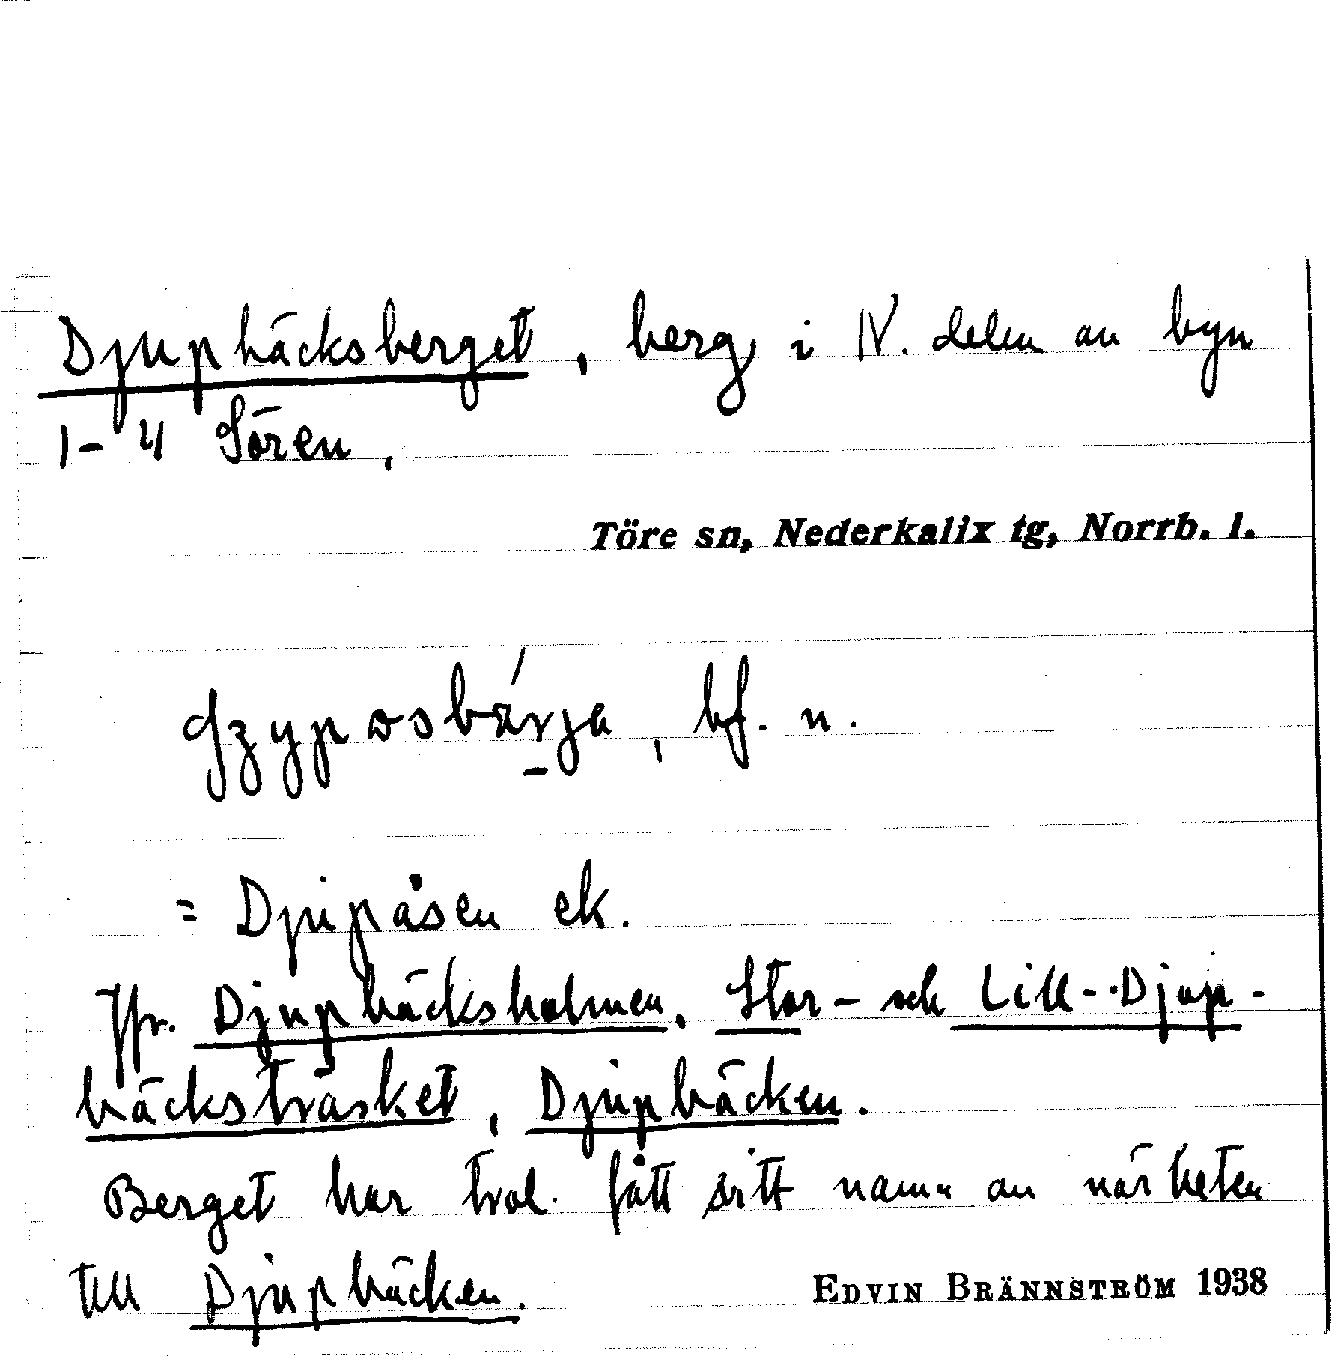 Djupbäcksberget, berg i N. delen av byn
1-4 Sören,
Töre sn, Nederkalix tg, Norrb. l.
bf. n.
= Djupåsen ek.
Jfr. Djupbäcksholmen, Stor- och Lill-Djup-
bäcksträsket, Djupbäcken.
Berget har trol. fått sitt namn av närheten
till Djupbäcken.
EDVIN BRÄNNSTRÖM 1938